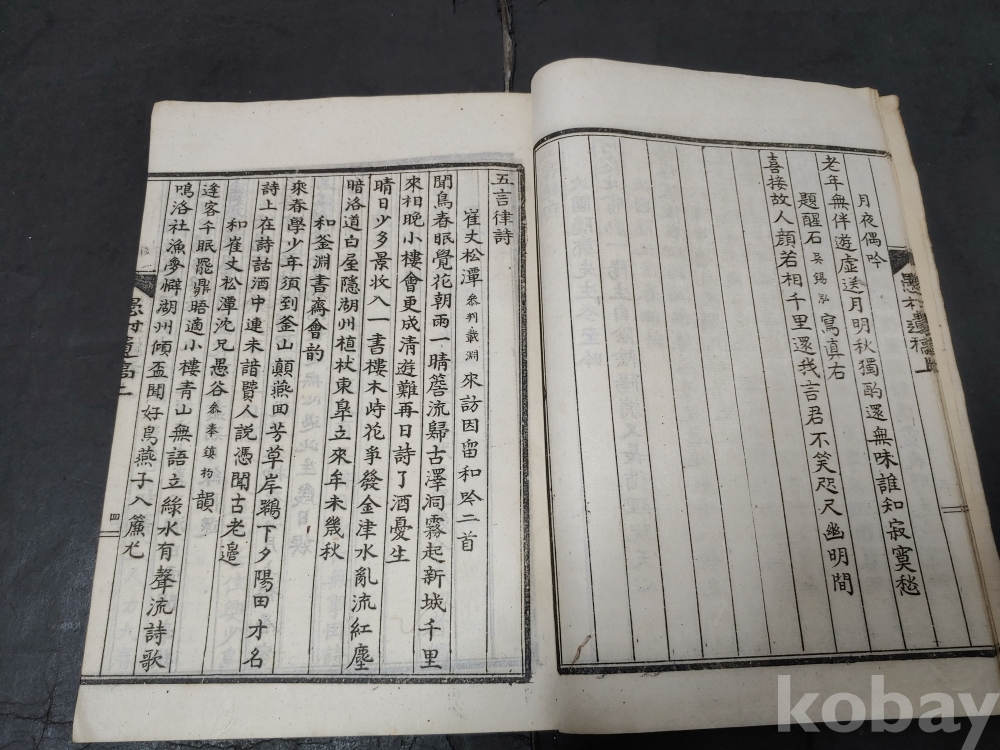 月夜偶吟
老年無伴遊虛送月明秋獨酌還無味誰知寂寞愁
題醒石吳錫泓寫真右
喜接故人顔若相千里還我言君不笑咫尺幽明間
五言律詩
崔丈松潭參判載淵來訪因留和吟二首
聞鳥春眠覺花朝雨一晴簷流歸古澤洞霧起新城千里
來相晚小樓會更成清遊難再日詩了酒憂生
晴日少多景收入一書樓木峙花爭發金津水亂流紅塵
暗洛道白屋隱湖州植杖東皐立來牟未幾秋
和釜淵書齋會韵
乘春學少年須到釜山顛燕田芳草岸鵶下夕陽田才名
詩上在詩話酒中連未諳賢人說憑聞古老邊
和崔丈松潭沈兄愚谷韻
逢客千眠罷鼎晤適小樓青山無語立綠水有聲流詩歌
鳴洛社漁夢僻湖州傾盃聞好鳥燕子入簾尤
四
kobay